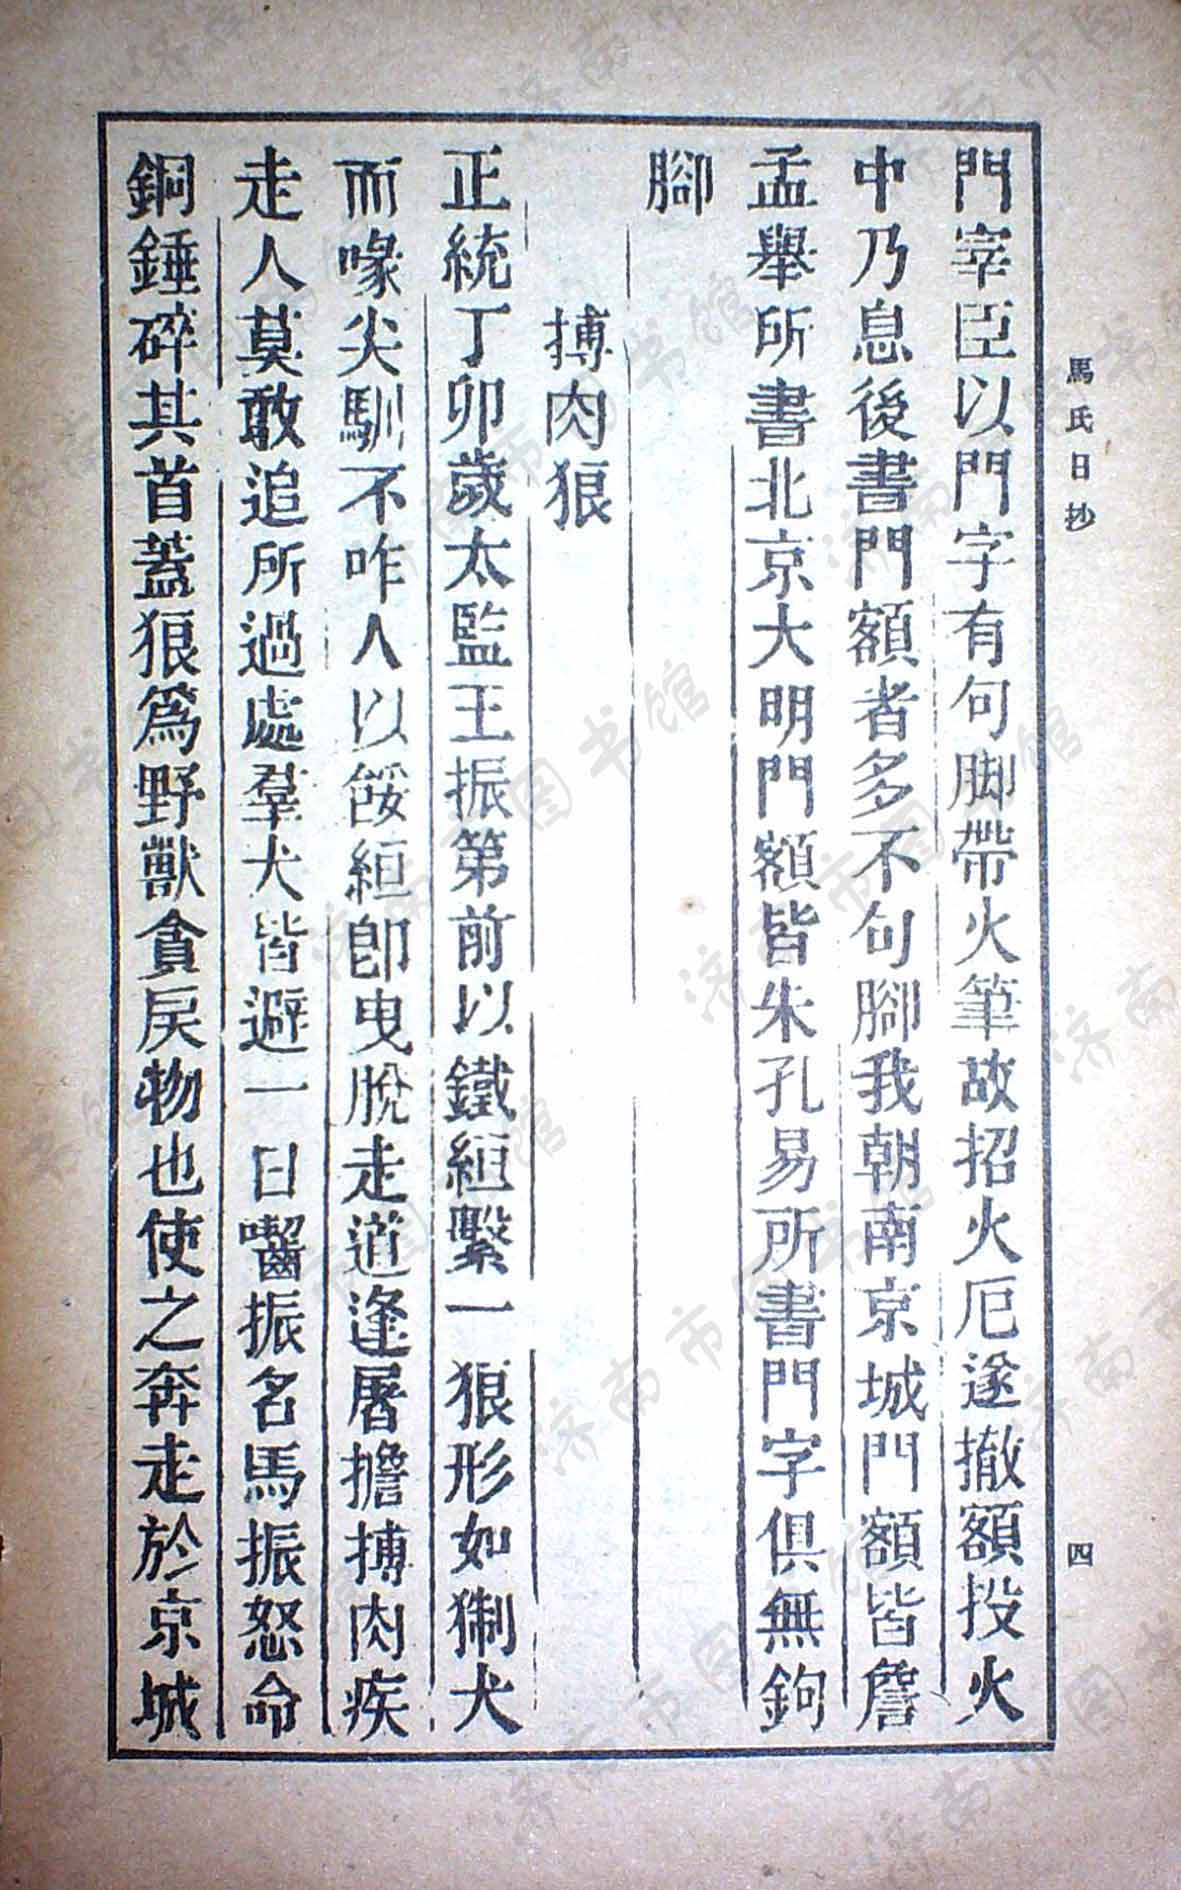 馬氏日抄
四
門宰臣以門字有句脚帶火筆故招火厄遂撤額投火
中乃息後書門額者多不句腳我朝南京城門額皆詹
孟舉所書北京大明門額皆朱孔易所書門字俱無鉤
腳
搏肉狼
正統丁卯歲太監王振第前以鐵絙繫一狼形如猘犬
而喙尖馴不咋人以餒絙卽曳脫走道逢屠擔搏肉疾
走人莫敢追所過處羣犬皆避一日囓振名馬振怒命
銅錘碎其首蓋狼爲野獸貪戾物也使之奔走於京城
济南市图书馆